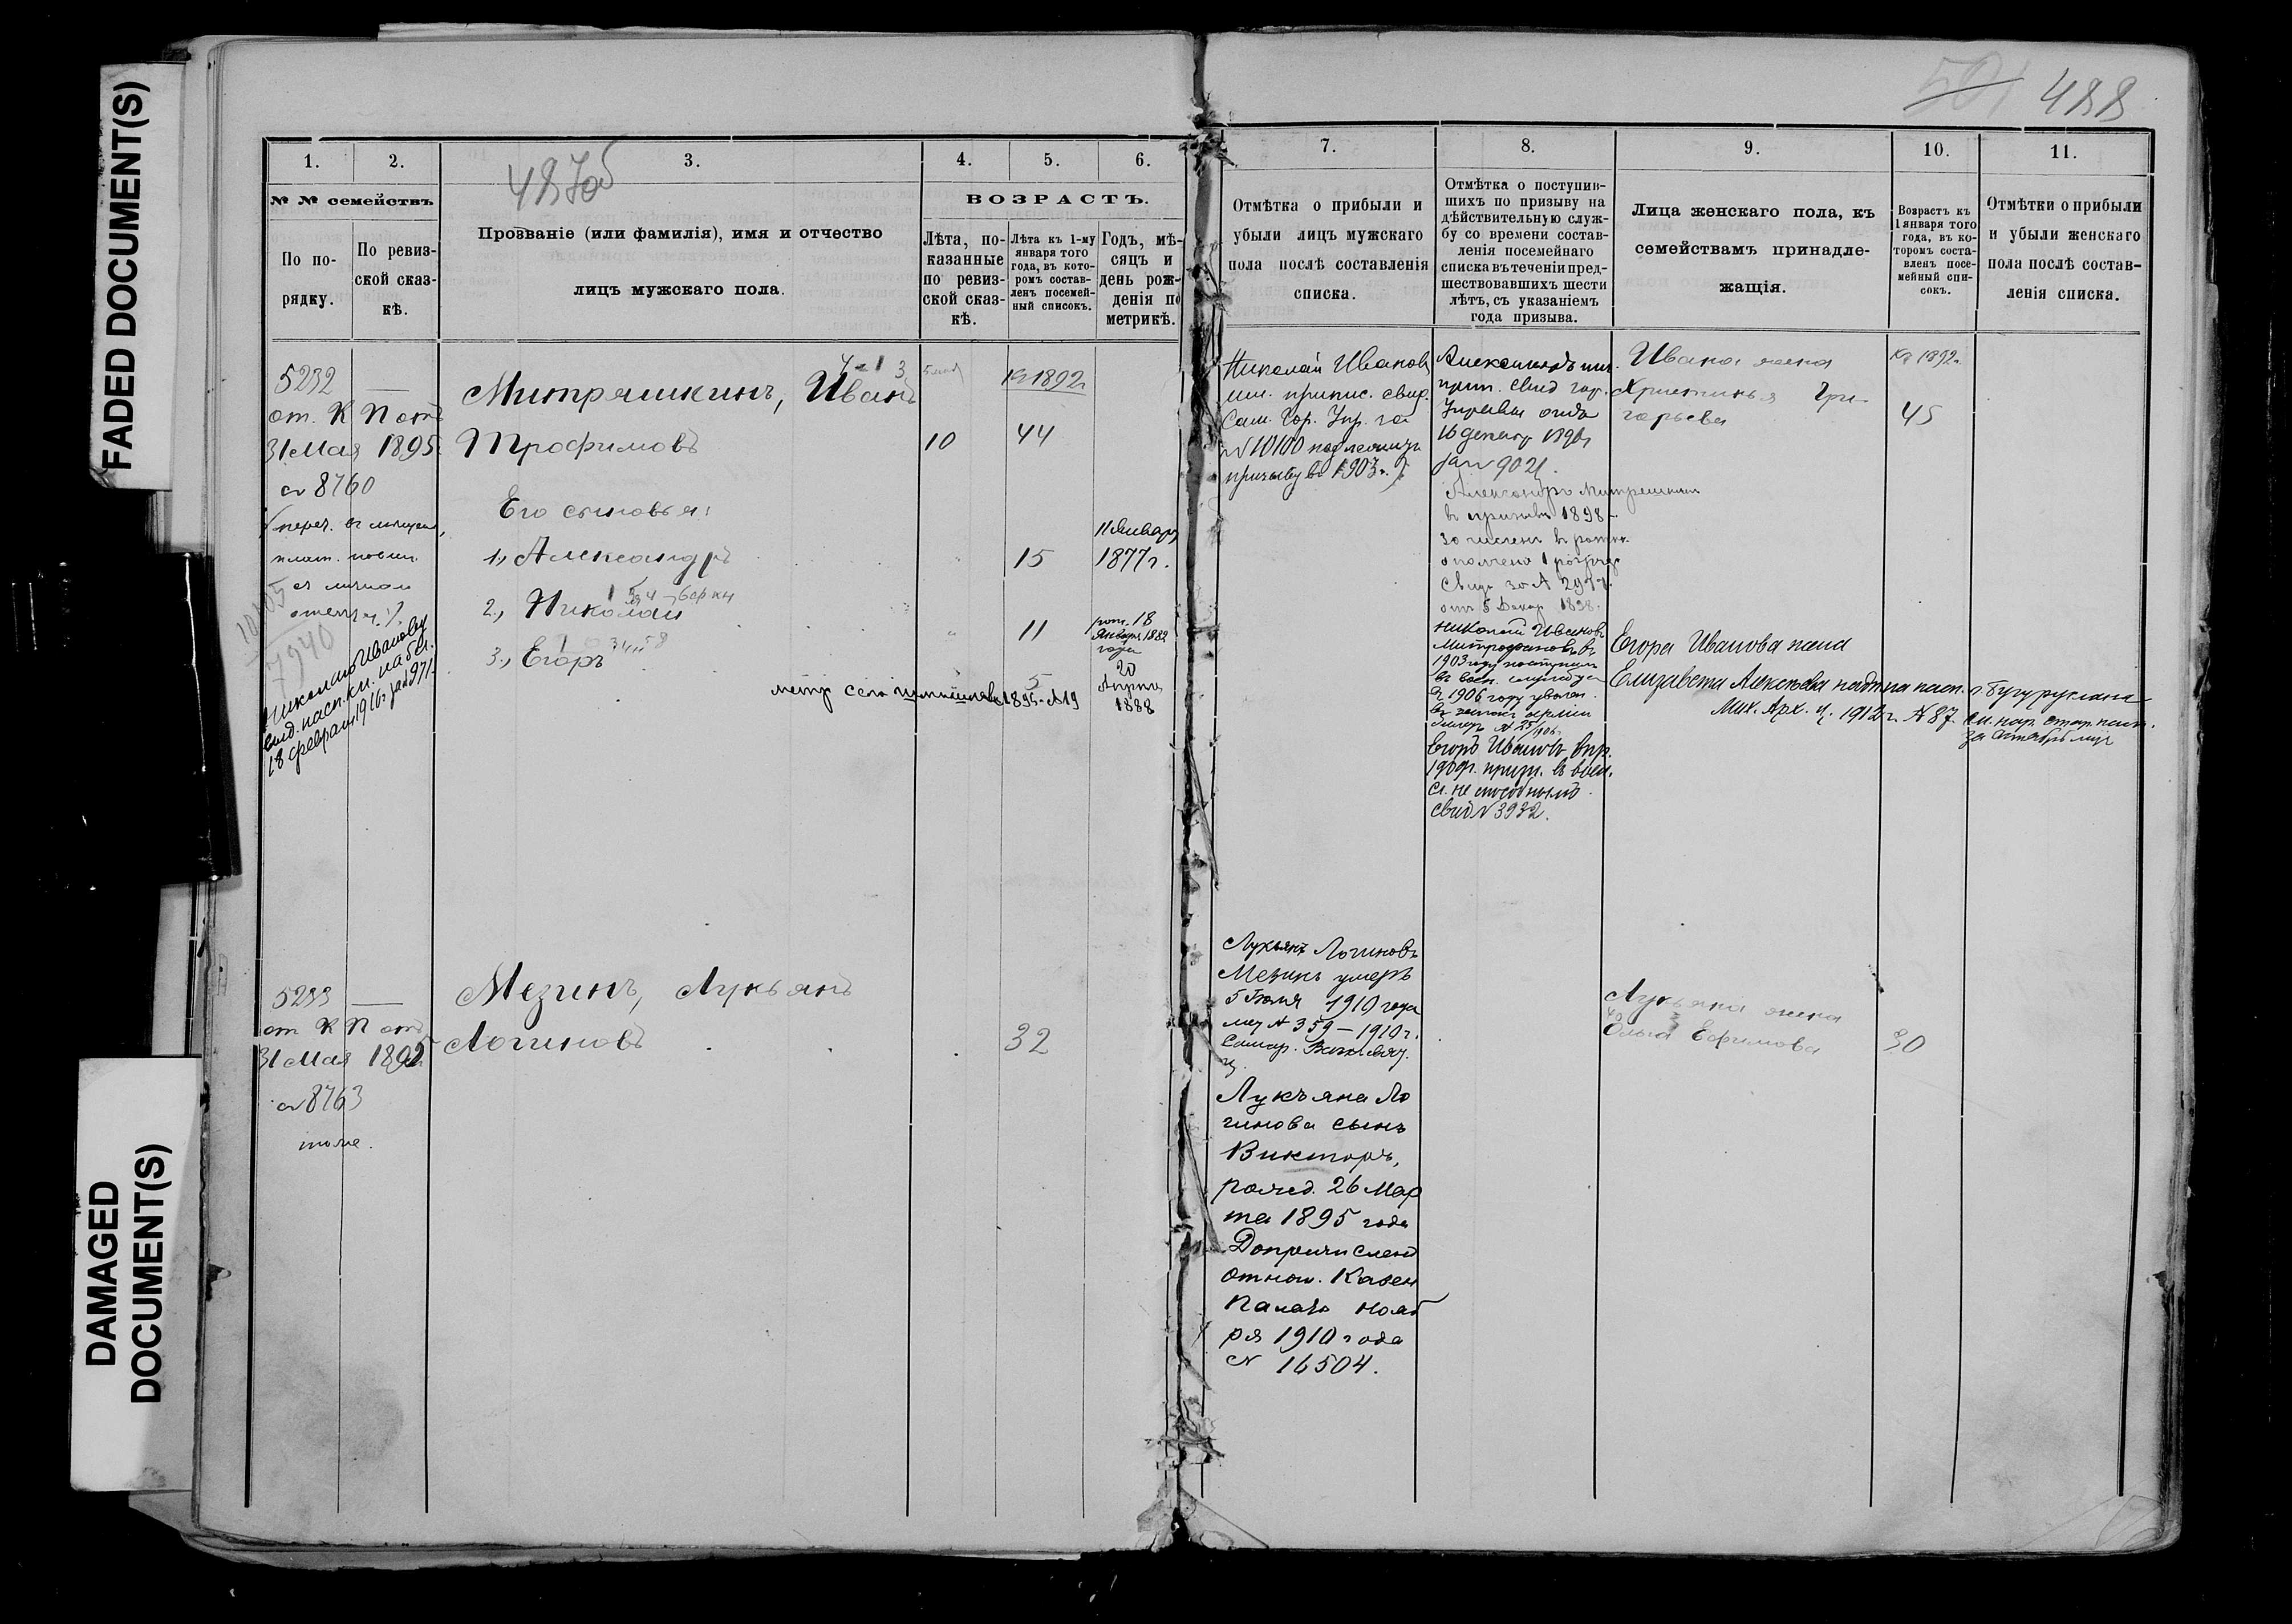 FADED DOCUMENT(S)
DAMAGED
DOCUMENT(S)
487об
1.
2.
3.
4.
5.
6.
№ № семействъ
По по-
рядку.
По ревиз-
ской сказ-
кѣ.
Прозваніе (или фамилія), имя и отчество
лицъ мужскаго пола.
ВОЗРАСТЪ.
Лѣта, по-
казанные
по ревиз-
ской сказ-
кѣ.
Лѣта къ 1-му
января того
года, въ кото-
ромъ состав-
ленъ посемей-
ный списокъ.
Годъ, мѣ-
сяцъ и
день рож-
денія по
метрикѣ.
5232
от. К П отъ
31 Мая 1895.
№ 8760
отметк.
7940
Николаю Иванову
выд. пасп. кн. на 5 л.
18 февраля 1916 г. за № 971.
Митряшкинъ, Иванъ
Трофимовъ
10
къ 1892 г
44
Его сыновья:
1., Александръ
15
11 Января
1877 г.
2., Николай
11
рот. 18
Января 1882
года
3., Егоръ
5
20
Апрѣля
1888
метр села 1895 г. № 19
5233
от К П отъ
31 Мая 1895
№ 8763
тоже.
Мезинъ, Лукьянъ
Логиновъ
32
501 488
7.
8.
9.
10.
11.
Отмѣтка о прибыли и
убыли лицъ мужскаго
пола послѣ составленія
списка.
Отмѣтка о поступив-
шихъ по призыву на
дѣйствительную служ-
бу со времени состав-
ленія посемейнаго
списка въ теченіи пред-
шествовавшихъ шести
лѣтъ, съ указаніемъ
года призыва.
Лица женскаго пола, къ
семействамъ принадле-
жащія.
Возрастъ къ
1 января того
года, въ ко-
торомъ соста-
вленъ посе-
мейный спи-
сокъ.
Отмѣтки о прибыли
и убыли женскаго
пола послѣ состав-
ленія списка.
Николай Иванов
им. припис. свид.
Сам. Гор. Упр. за
№ 10100 подлежитъ
призыву въ 1903 г.
Александръ им.
прип. свид гор.
Управы отъ
16 декабр 1896
за № 9021.
Александръ Митрешкин
въ призывъ 1898
зачисленъ въ ратн.
ополчен 1 разряд
Свид. за № 2977.
отъ 5 Декаб 1898.
Николай Ивановъ
Митрофановъ въ
1903 году поступилъ
въ воен. службу и
въ 1906 году уволен
въ запасъ арміи
Егоръ Ивановъ въ пр.
1909 г. призн. въ воен.
сл. не способнымъ
свид № 3932.
Ивана жена
Христинья Гри-
горьева
къ 1892 г.
45
Егора Иванова жена
Елизавета Алексѣева
Мих. Арх. ц. 1912 г. № 87.
г. Бугуруслана
Лукьянъ Логиновъ
Мезинъ умеръ
5 Іюля 1910 года
мет № 359 – 1910 г.
Самар.
Лукъяна Ло
гинова сынъ
Викторъ,
рожд. 26 Мар
та 1895 года
Допричисленъ
отнош. Казен
Палаты нояб
ря 1910 года
№ 16504.
Лукьяна жена
Ольга Ефимова
30